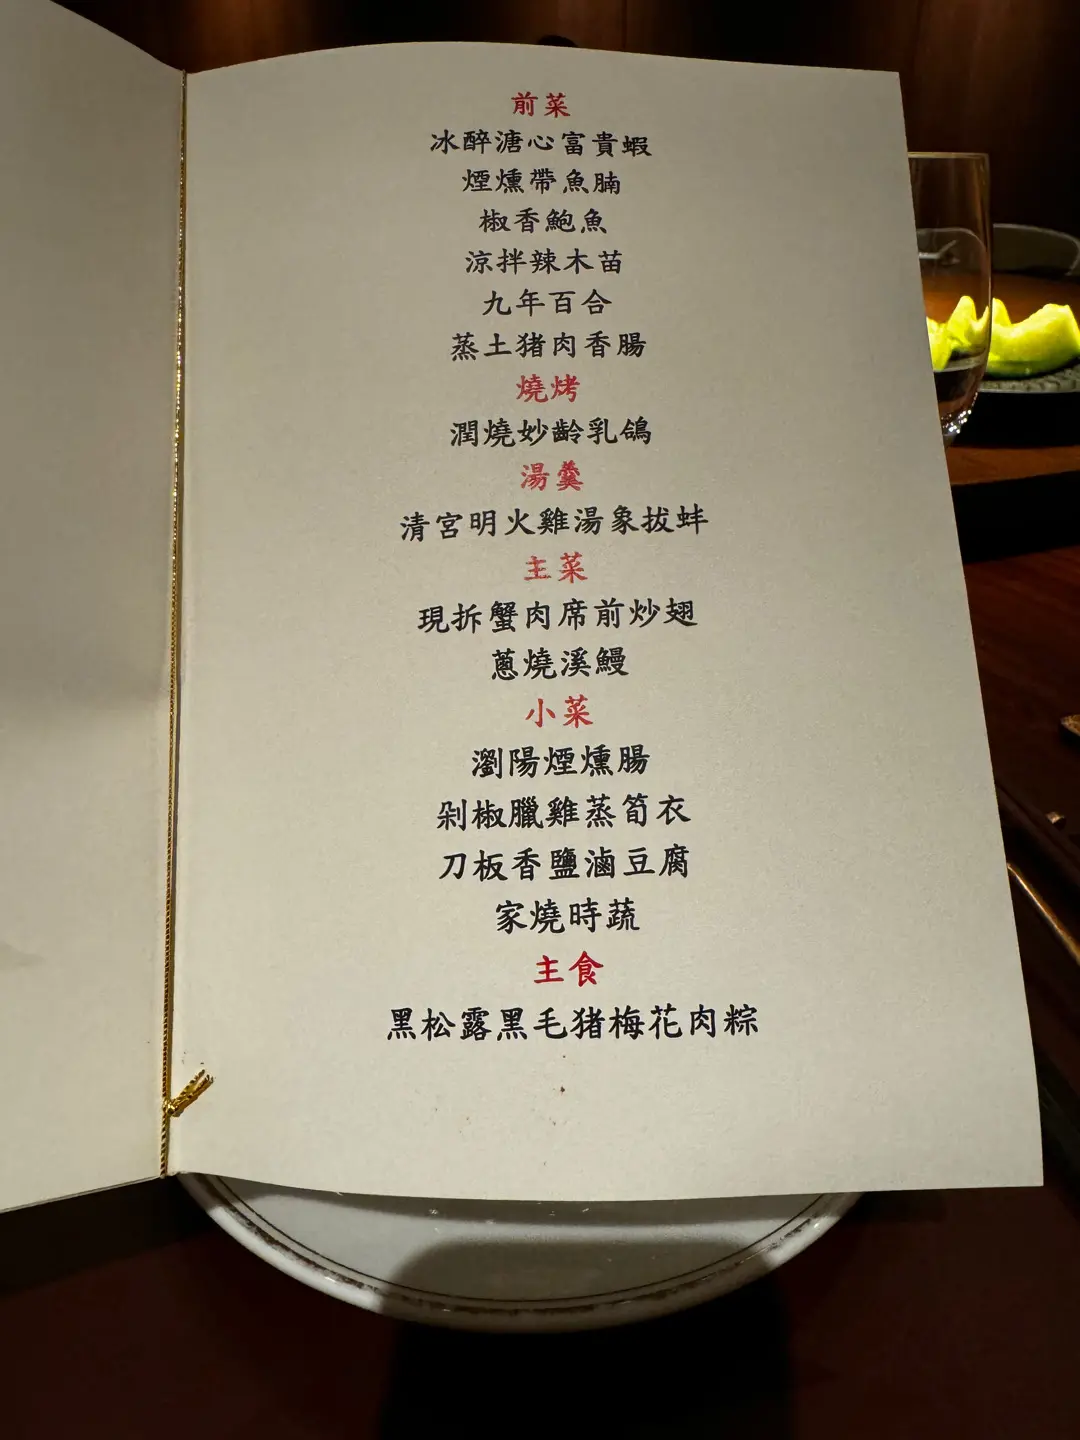 前菜
冰醉溏心富貴蝦
煙燻帶魚腩
椒香鮑魚
涼拌辣木苗
九年百合
蒸土豬肉香腸
燒烤
潤燒妙齡乳鴿
湯羹
清宮明火雞湯象拔蚌
主菜
現拆蟹肉席前炒翅
蔥燒溪鰻
小菜
瀏陽煙燻腸
剁椒臘雞蒸筍衣
刀板香鹽滷豆腐
家燒時蔬
主食
黑松露黑毛豬梅花肉粽